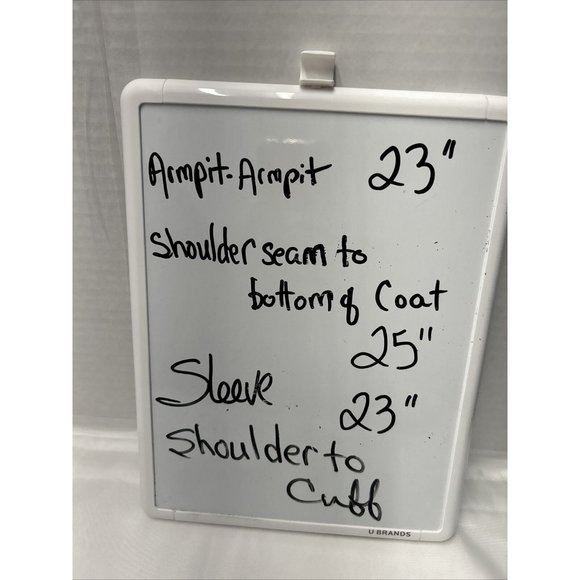 Armpit-Armpit 23"
Shoulder seam to
bottom of Coat
25"
Sleeve 23"
Shoulder to
Cuff
U BRANDS